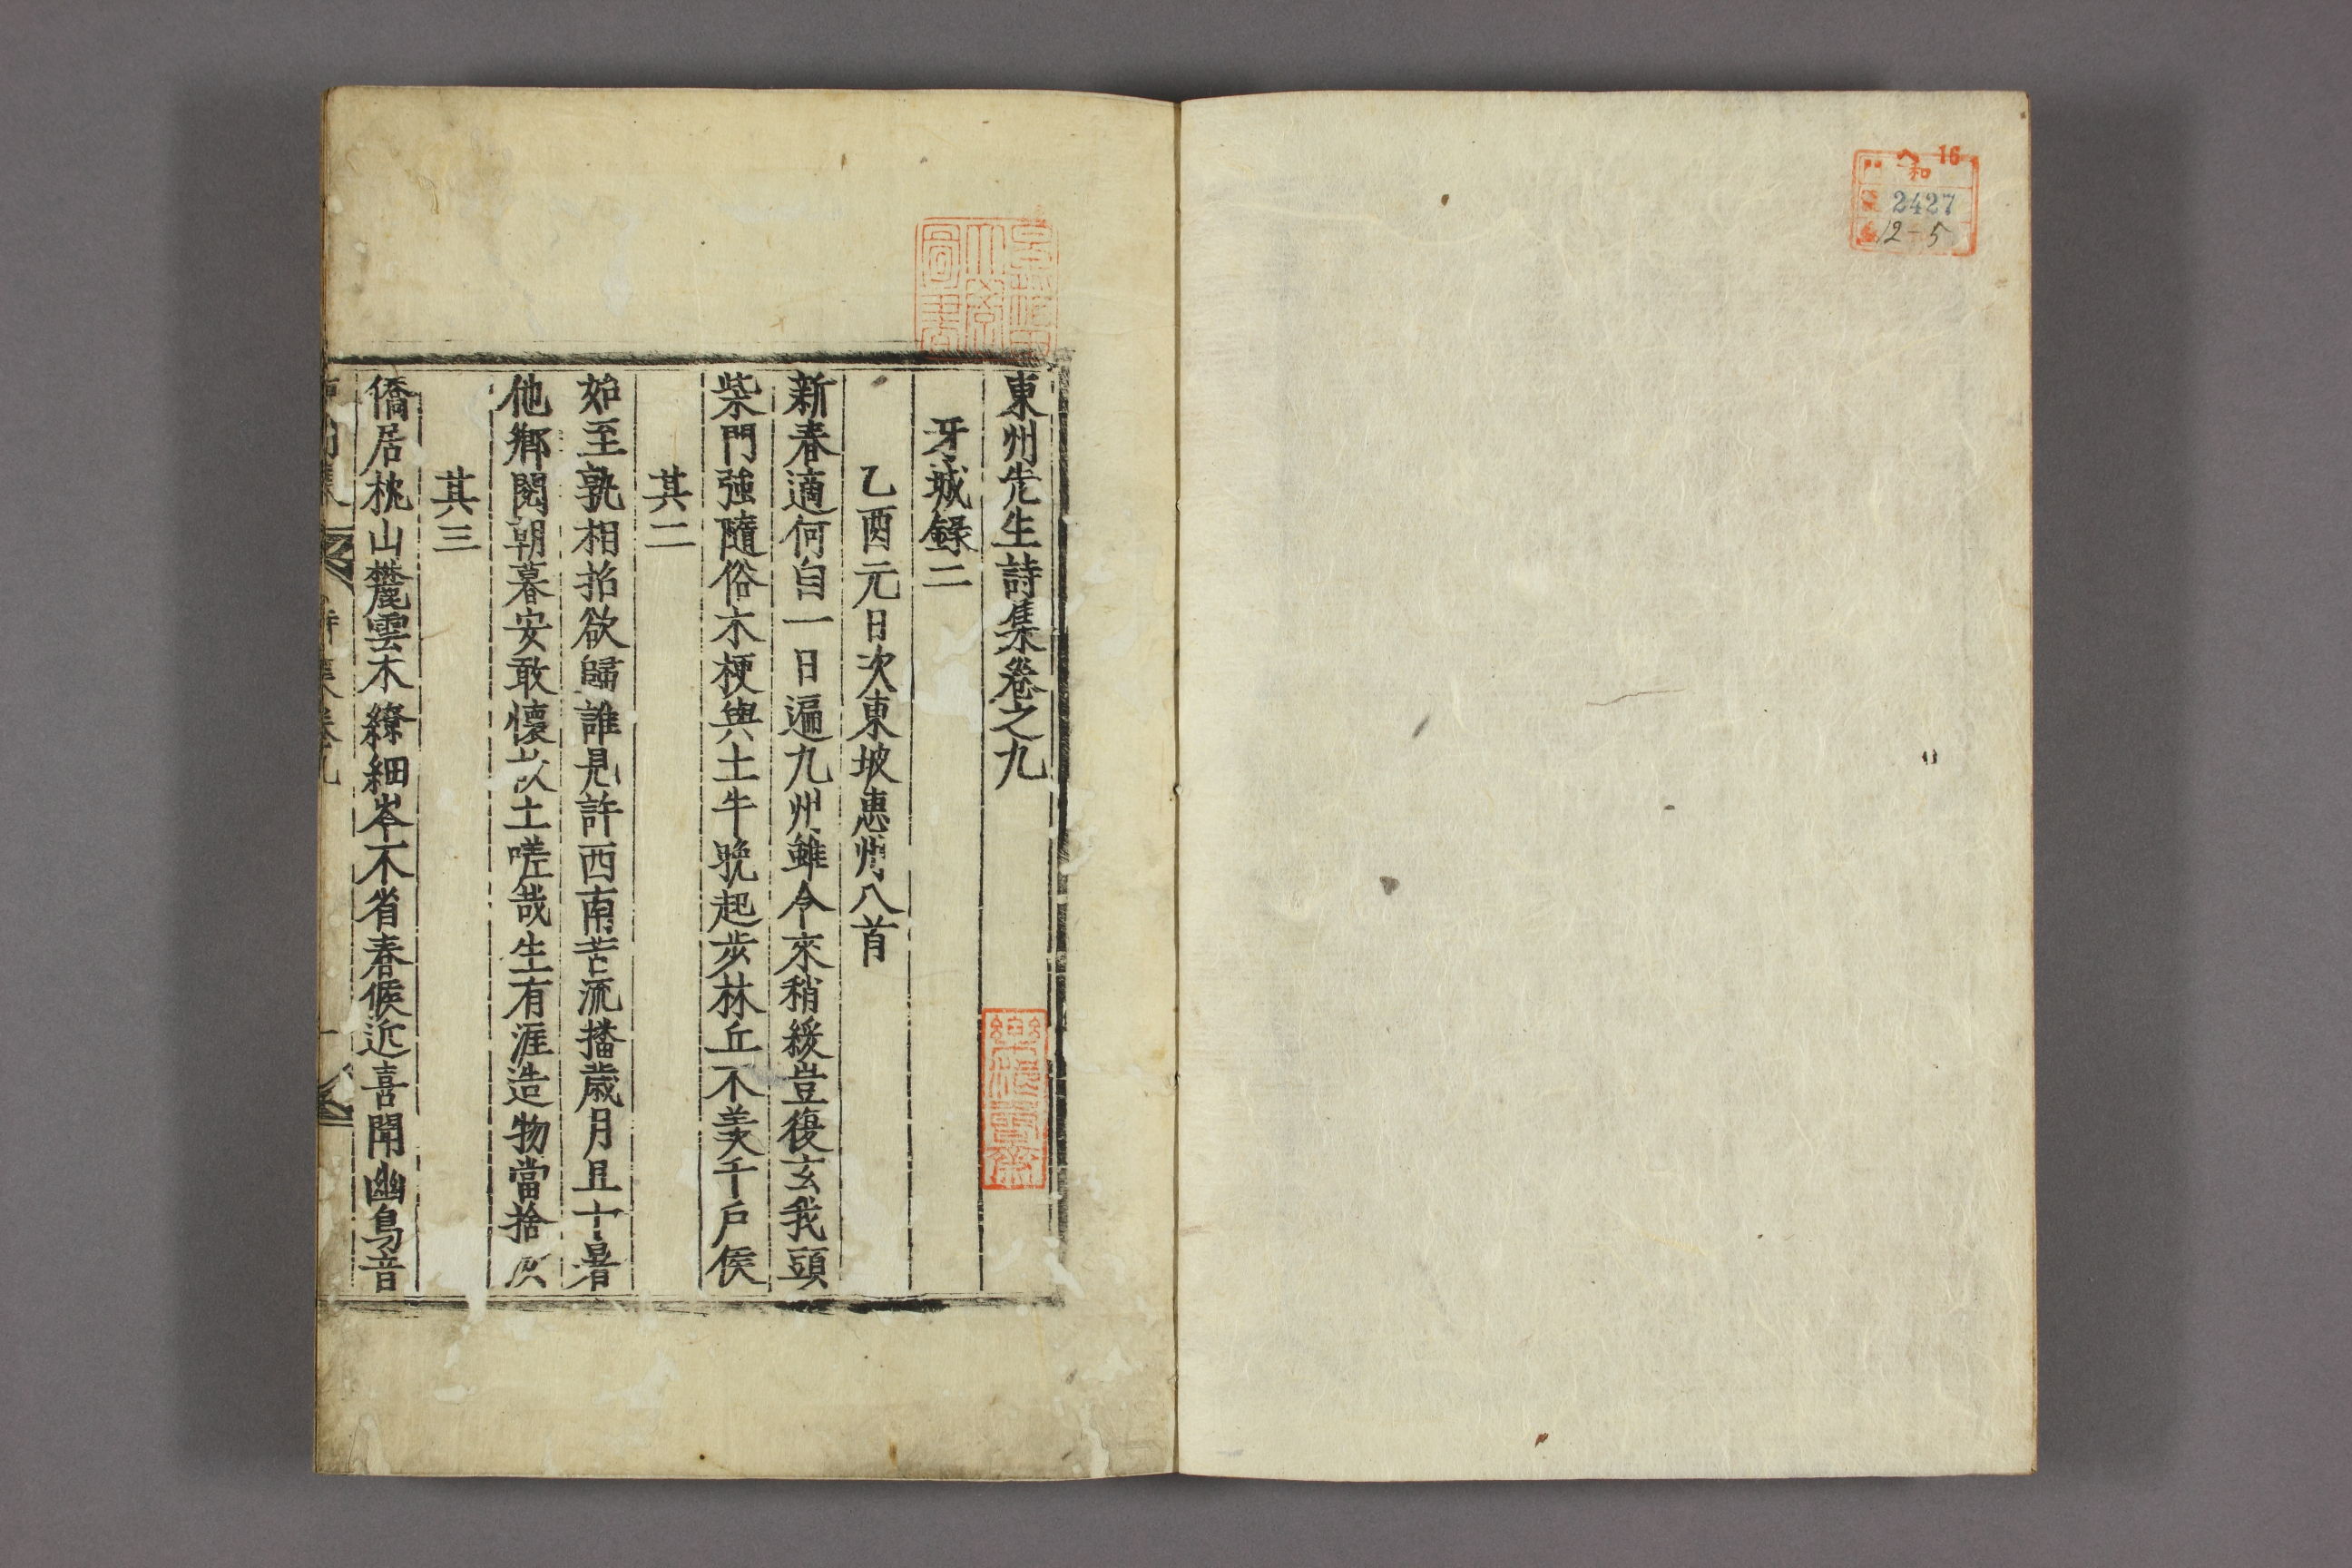 16
和
2427
12-5
東州先生詩集卷之九
牙城錄二
乙酉元日次東坡惠州八首
新春適何自一日遍九州雖令來稍緩豈復玄我頭
柴門強隨俗木梗與土牛晚起步林丘不羨千戶侯
其二
始至孰相招欲歸誰見許西南苦流播歲月且十暑
他鄉閱朝暮安敢懷故土嗟哉生有涯造物當捨
其三
僑居桃山麓雲木繚細岑不省春候近喜聞幽鳥音
詩集卷九